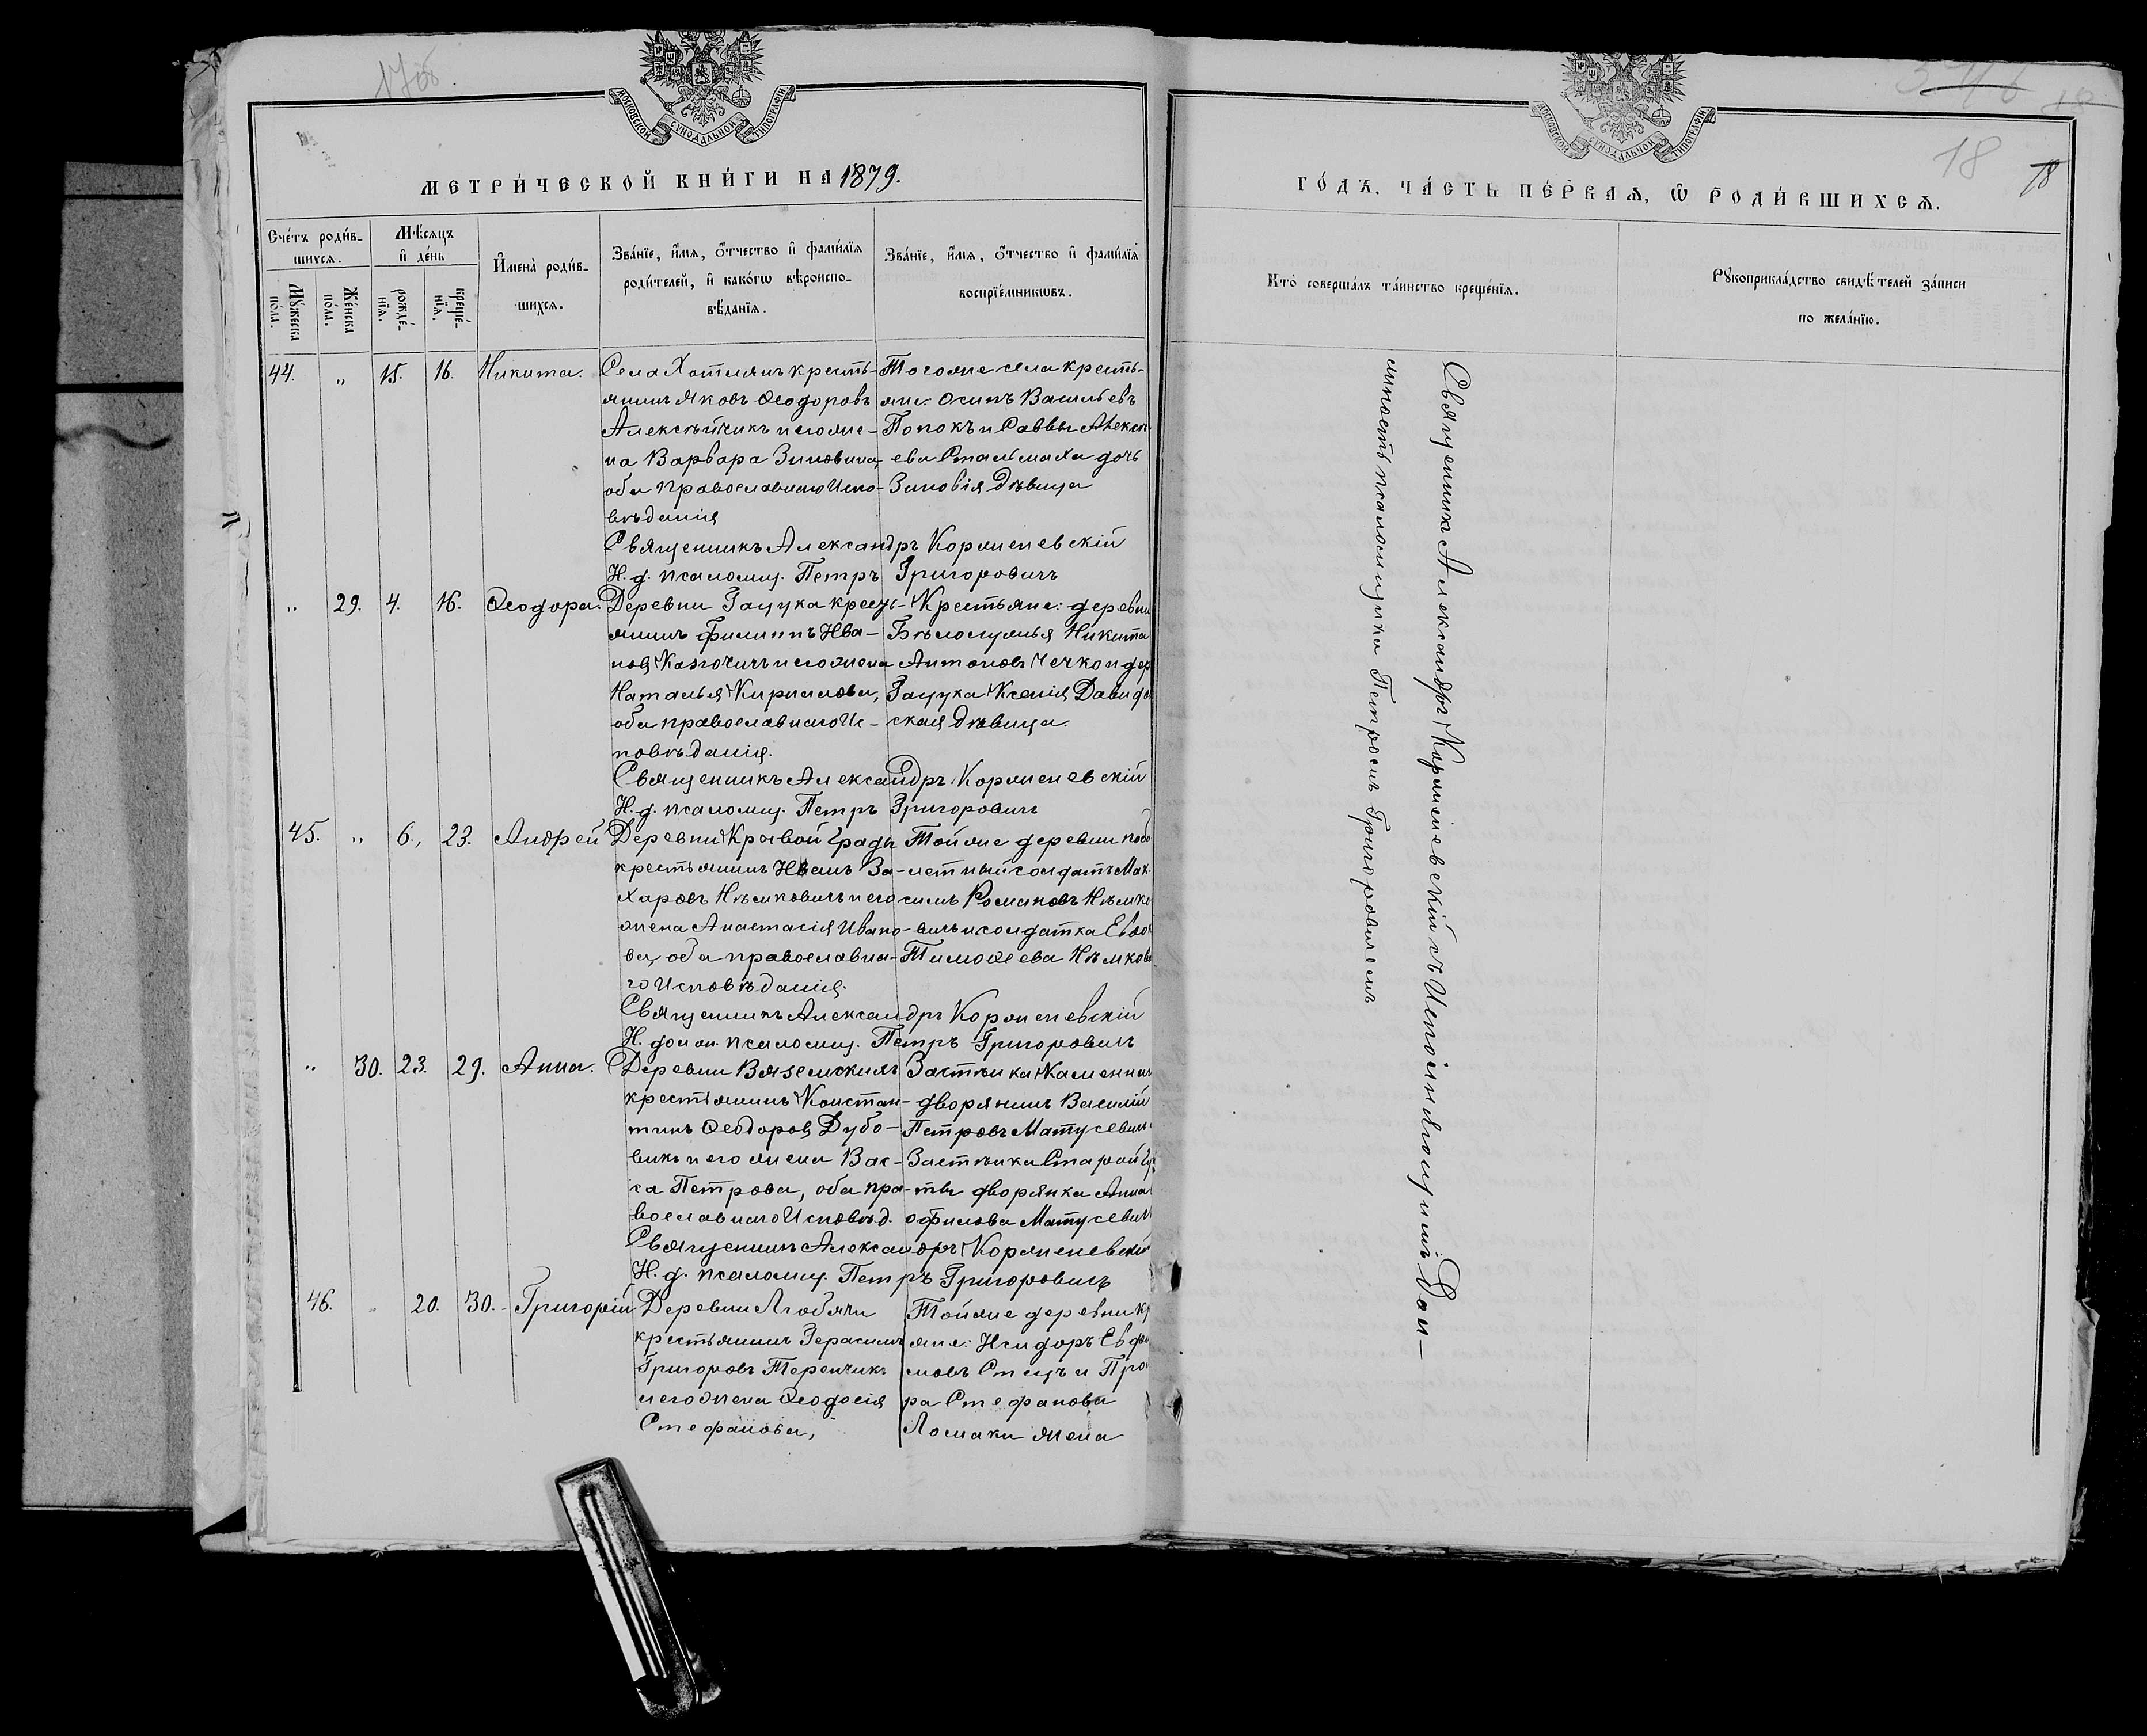 МОСКОВСКОЙ СѴНОДАЛЬНОЙ ТИПОГРАФІИ
МЕТРИ́ЧЕСКОЙ КНИ́ГИ НА 1879.
Сче́тъ роди́в-
шихсѧ.
Мѣ́сѧцъ
и҆ де́нь
И҆мена̀ роди́в-
шихсѧ.
Зва́нїе, и҆́мѧ, ѻ҆́тчество и҆ фами́лїѧ
роди́телей, и҆ како́гѡ вѣроиспо-
вѣ́данїѧ.
Зва́нїе, и҆́мѧ, ѻ҆́тчество и҆ фами́лїѧ
воспрїе́мникѡвъ.
Мꙋ́жеска
по́ла.
Же́нска
по́ла.
рожде́-
нїѧ.
креще́-
нїѧ.
44. „ 15. 16. Никита.
Села Хотлянъ кресть-
янинъ Яковъ Ѳеодоровъ
Алексѣйчикъ и его же-
на Варвара Зиновина,
оба православнаго Испо-
вѣданія
Тогоже села кресть-
яне: Осипъ Васильевъ
Попокъ и Саввы Алексѣ-
ева Стальмаха дочь
Зиновія дѣвица
Священникъ Александръ Корженевскій
И. д. псаломщ. Петръ Григоровичъ
„ 29. 4. 16. Ѳеодора.
Деревни Защука кресть-
янинъ Филиппъ Ива-
новъ Казючичъ и его жена
Наталья Кириллова,
оба православнаго Ис-
повѣданія.
Крестьяне: деревни
Бѣлосулья Никита
Антоновъ Чечко и дер
Защука Ксенія Давидов
ская дѣвица.
Священникъ Александръ Корженевскій
И. д. псаломщ. Петръ Григоровичъ
45. „ 6. 23. Андрей
Деревни Кривой Гряды
крестьянинъ Иванъ За-
харовъ Нѣмковичъ и его
жена Анастасія Ивано-
ва, оба православна-
го Исповѣданія.
Тойже деревни
летный солдатъ Мак-
симъ Романовъ Нѣмко
вичъ и солдатка Евдо
Тимоѳеева Нѣмков
Священникъ Александръ Корженевскій
И. долж. псаломщ. Петръ Григоровичъ
„ 30. 23. 29. Анна.
Деревни Вяземскихъ
крестьянинъ Констан-
тинъ Ѳеодоровъ Дубо-
викъ и его жена Вас-
са Петрова, оба пра-
вославнаго Исповѣд.
Застѣнка Каменни
дворянинъ Василій
Петровъ Матусевич
Застѣнка Старой
ты дворянка Анна
офилова Матусевич
Священникъ Александръ Корженевскій
И. д. псаломщ. Петръ Григоровичъ
46. „ 20. 30. Григорій
Деревни Любячи
крестьянинъ Герасимъ
Григоровъ Теренчикъ
и его жена Ѳеодосія
Стефанова,
Тойже деревни кр
яне: Исидоръ Евдо
мовъ Стецъ и Про
ра Стефанова
Ломаки жена
МОСКОВСКОЙ СѴНОДАЛЬНОЙ ТИПОГРАФІИ
18
18
ГО́ДЪ. ЧА́СТЬ ПЕ́РВАѦ, Ѡ҆ РОДИ́ВШИХСѦ.
Кто̀ соверша́лъ та́инство креще́нїѧ.
Рꙋкоприкла́дство свидѣ́телей за́писи
по жела́нїю.
Священникъ Александръ Корженевскій съ Исполняющимъ Дол-
жность псаломщика Петромъ Григоровичемъ